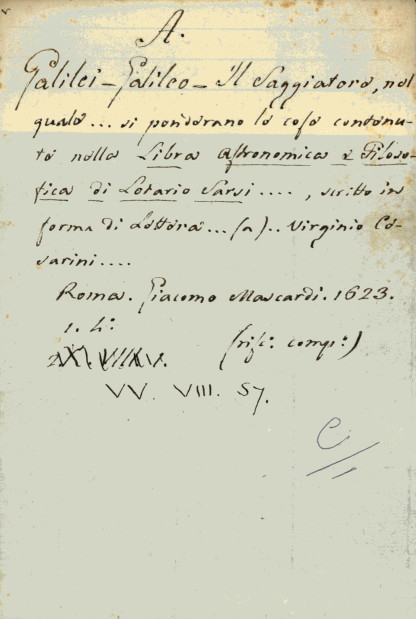 A.
Galilei - Galileo - Il Saggiatore, nel
quale... si ponderano le cose contenu-
te nella Libra Astronomica e Filoso-
fica di Lotario Sarsi...., scritto in
forma di Lettera... (a).. Virginio Ce-
sarini....
Roma. Giacomo Mascardi. 1623.
1. 4°.
(rist. comp.)
VV. VIII. 57.
C